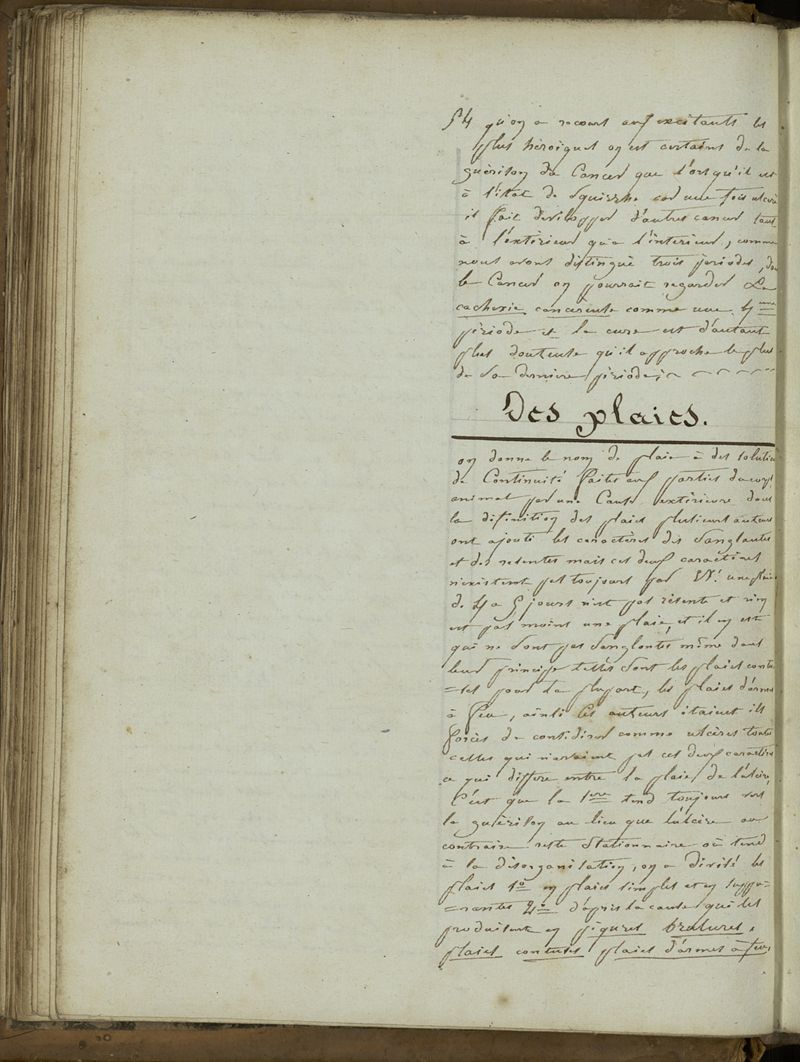 54 qu'on a recours aux excitants les
plus héroiques on est certains de la
guèrison du Cancer que l'orsqu'il est
à l'état de Squirrhe car une fois ulcéré
il fait développer d'autres cancer tant
à l'éxtérieur qu'a l'intérieur, comme
nous avons distingué trois périodes, dans
le Cancer on pourrait regarder La
cachexie cancereuse comme une 4eme
période et la cure est d'autant
plus douteuse qu'il approche le plus
de sa derniere période;
Des plaies.
on donne le nom de plaie à des solution
de Continuité faites aux parties du corps
animal par une Cause extérieure dans
la définition des plaies plusieurs auteurs
ont ajouté les caractères des Sanglantes
et des résentes mais ces deux caractères
n'existent pas toujours par une plaie
de 4 a 5 jours n'est pas résente et n'en
est pas moins une plaie, et il en est
qui ne sont pas Sanglantes même dans
leur principe telles sont les plaies contu
=ses pour la plupart, les plaies d'armes
à feu, ainsi les auteurs étaient ils
forcés de considérer comme ulcères toutes
celles qui n'avaient pas ces deux caractères
ce qui differe entre la plaie de l'ulcère,
C'est que la 1ere tend toujours vers
la guèrison au lieu que l'ulcère au
contraire reste Stationnaire où tend
à la désorganisation, on a divisé les
plaies 1o en plaies simples et en suppu=
=rantes 2o d'après la cause qui les
produisent en piqures
plaies contuses plaies d'armes à feu,